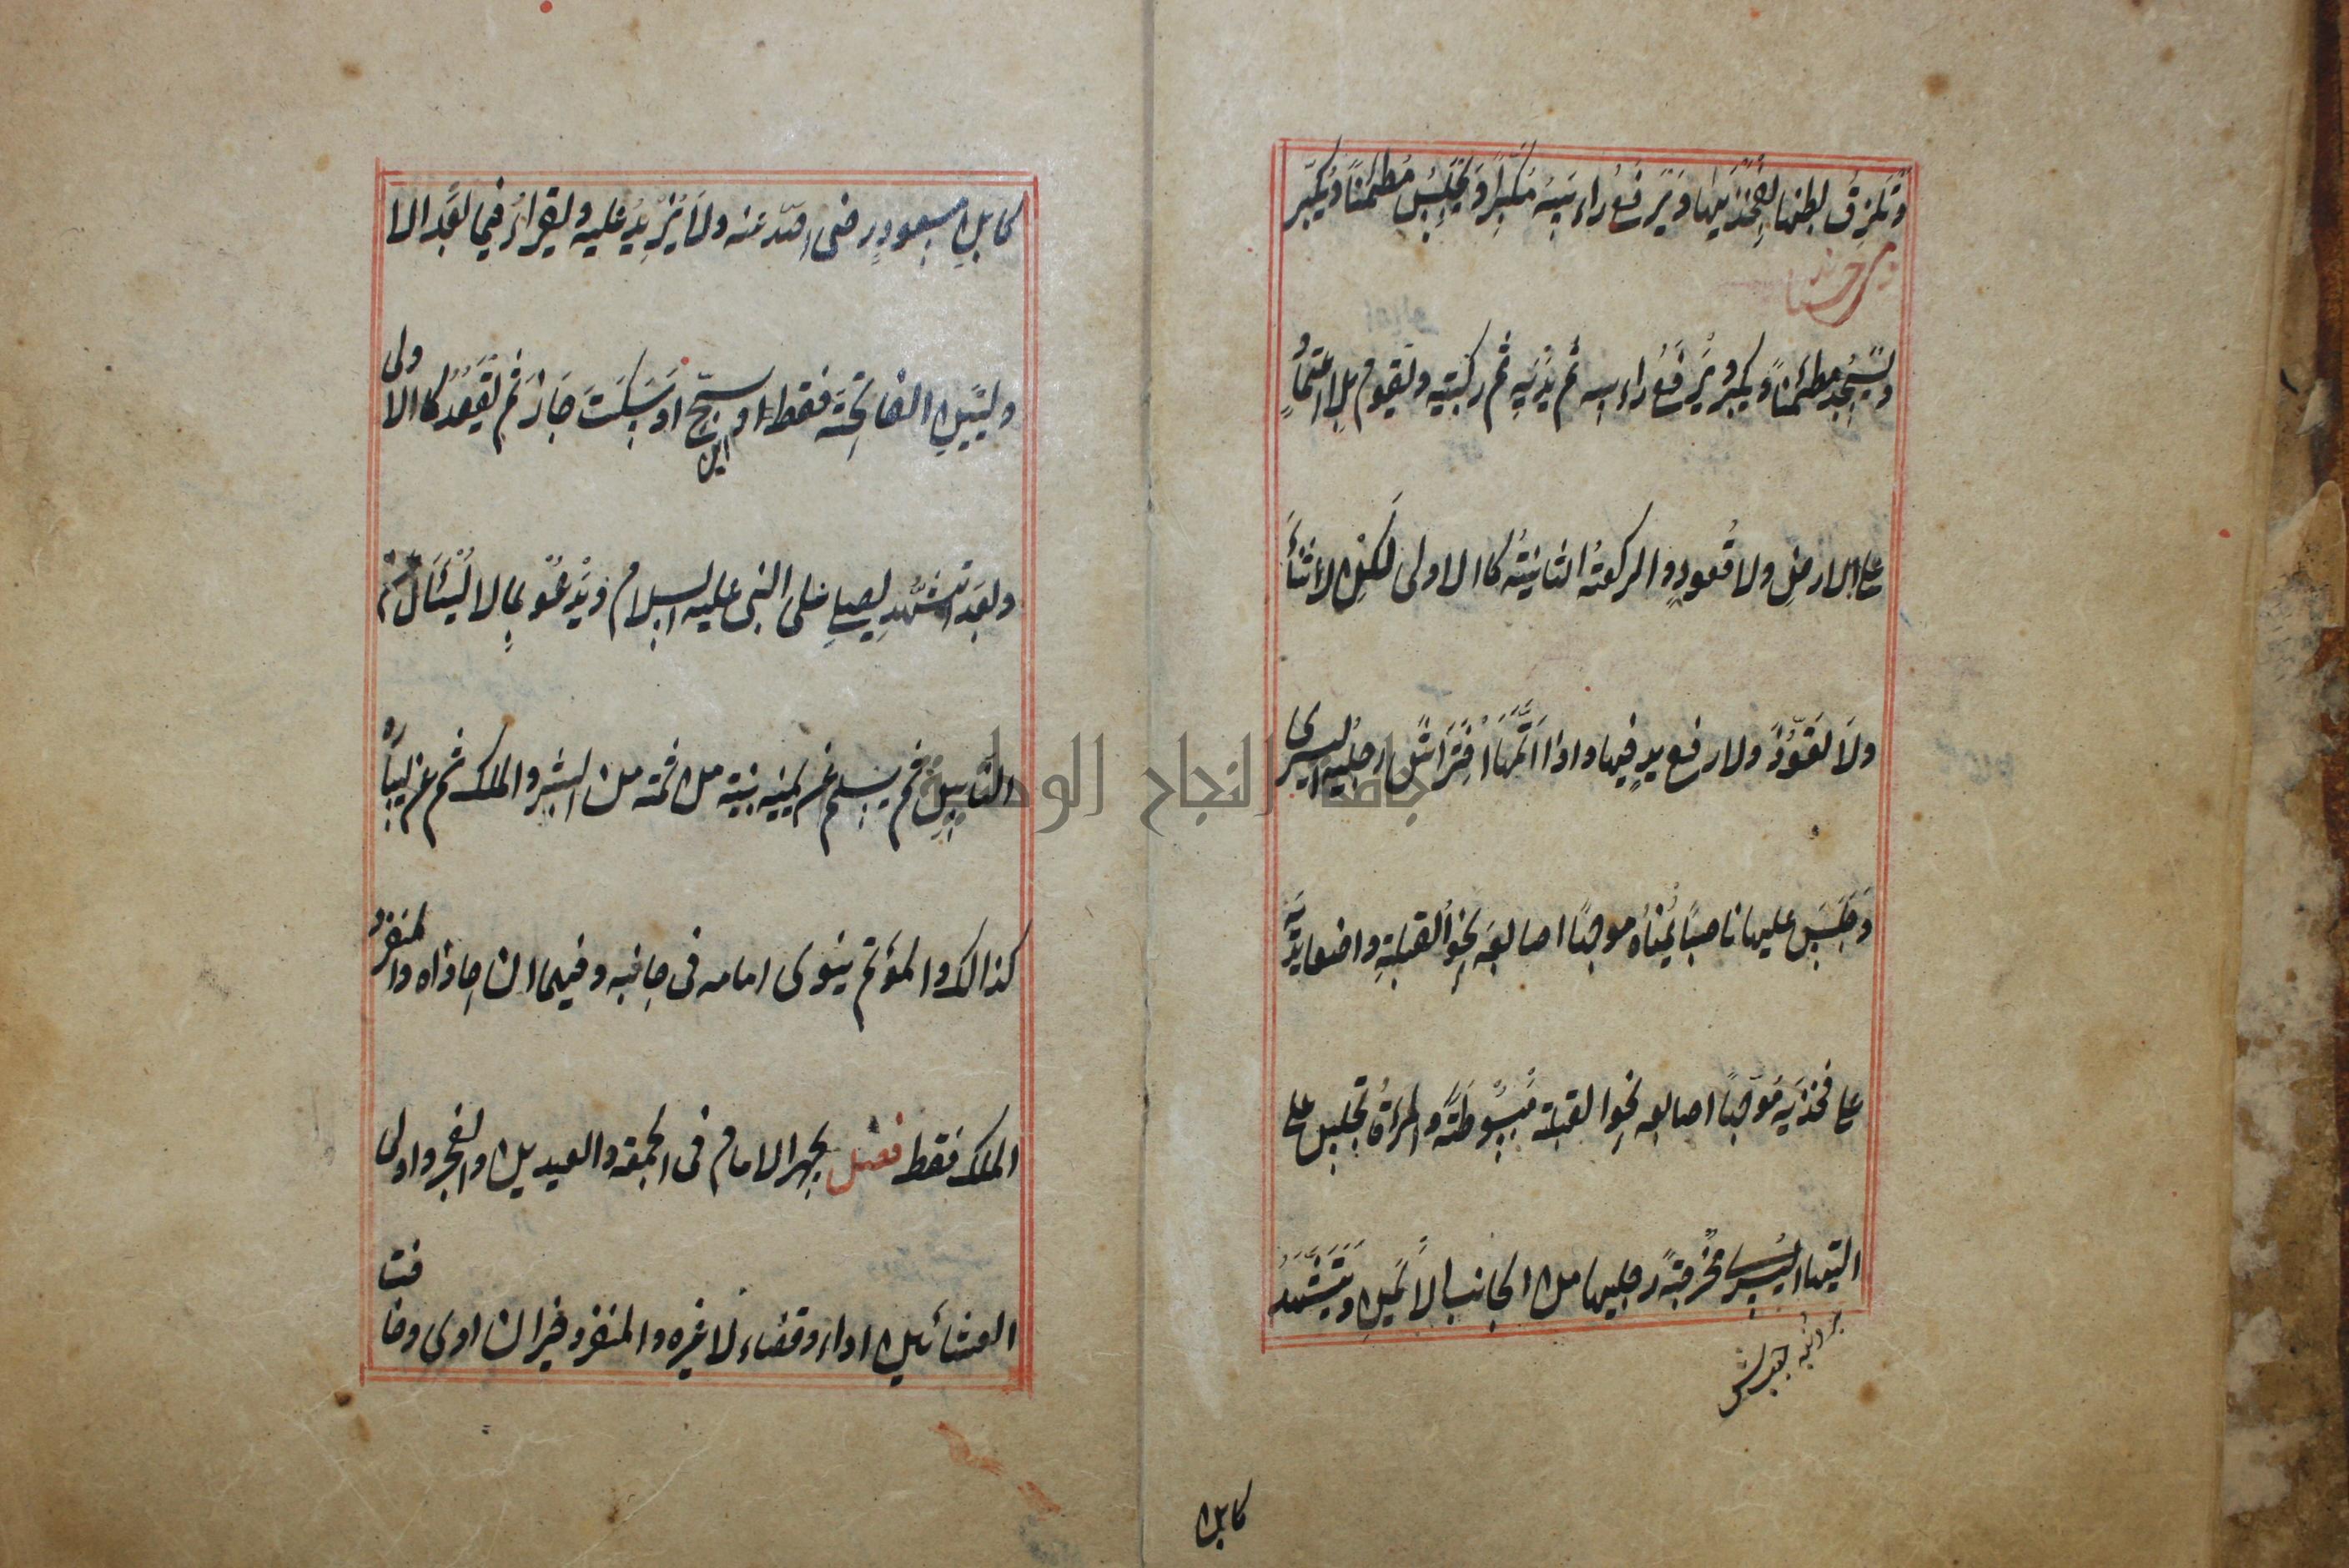 وَتَلزِقُ بطنها بفخذيها وَيَرفَعُ راءسَهُ مُكبِّراً وَيَجلِسُ مُطمَئنّاً وَيُكبّر
وَيَسجُد مطمئنّاً ويكبر ويرفعُ راءسه ثم يدَيه ثم ركبتيه ويقوم بلا اعتمادٍ
على الارضِ ولا قُعودٍ والركعة الثانيةُ كالاولى لكن لا ثناءَ
ولَا تعَوُّذَ ولا رفع يدٍ فيها واذا اتمَّها اِفتَرَاشَ رجليه اليسرى
وَجَلَسَ عليها ناصباً يُمناهُ موجهاً اصابعَه نحوَ القبلةِ واضعا يدَيه
على فخذَيه مُوجّهاً اصابعه نحو القبلة مبسُوطةً والمراةُ تجلس على
اليتها اليسرى مُخرجةً رجليها من الجانب الاَيمنِ وَتَتَشَهَّدُ
كابن
كابن مسعودٍ رضى الله عنه ولَا يُزيدُ عليه ويقراءُ فيما بَعَد الا
وليَين الفاتحَةَ فقط او سبّح او سَكتَ جَازَ ثم يَقعُدُ كالاولى
وبعَد التشهُّدِ يصلى علىَ النبى عليه السلام وَيَدعُو بمَا لا يُسئَالُ من
الناسِ ثم يسلم عن يمينه بنيّة من ثمّه من البشر والملك ثم عن يسَارِه
كذالك والمؤتم ينوى امامه فى جانبه وفيهما ان حاذاه والمنفرد
الملك فقط فصل يجهر الامام فى الجمعة والعيدين والفجر واولى
العشائين اداء وقضاء لا غيره والمنفرد خيران ادى وخافت